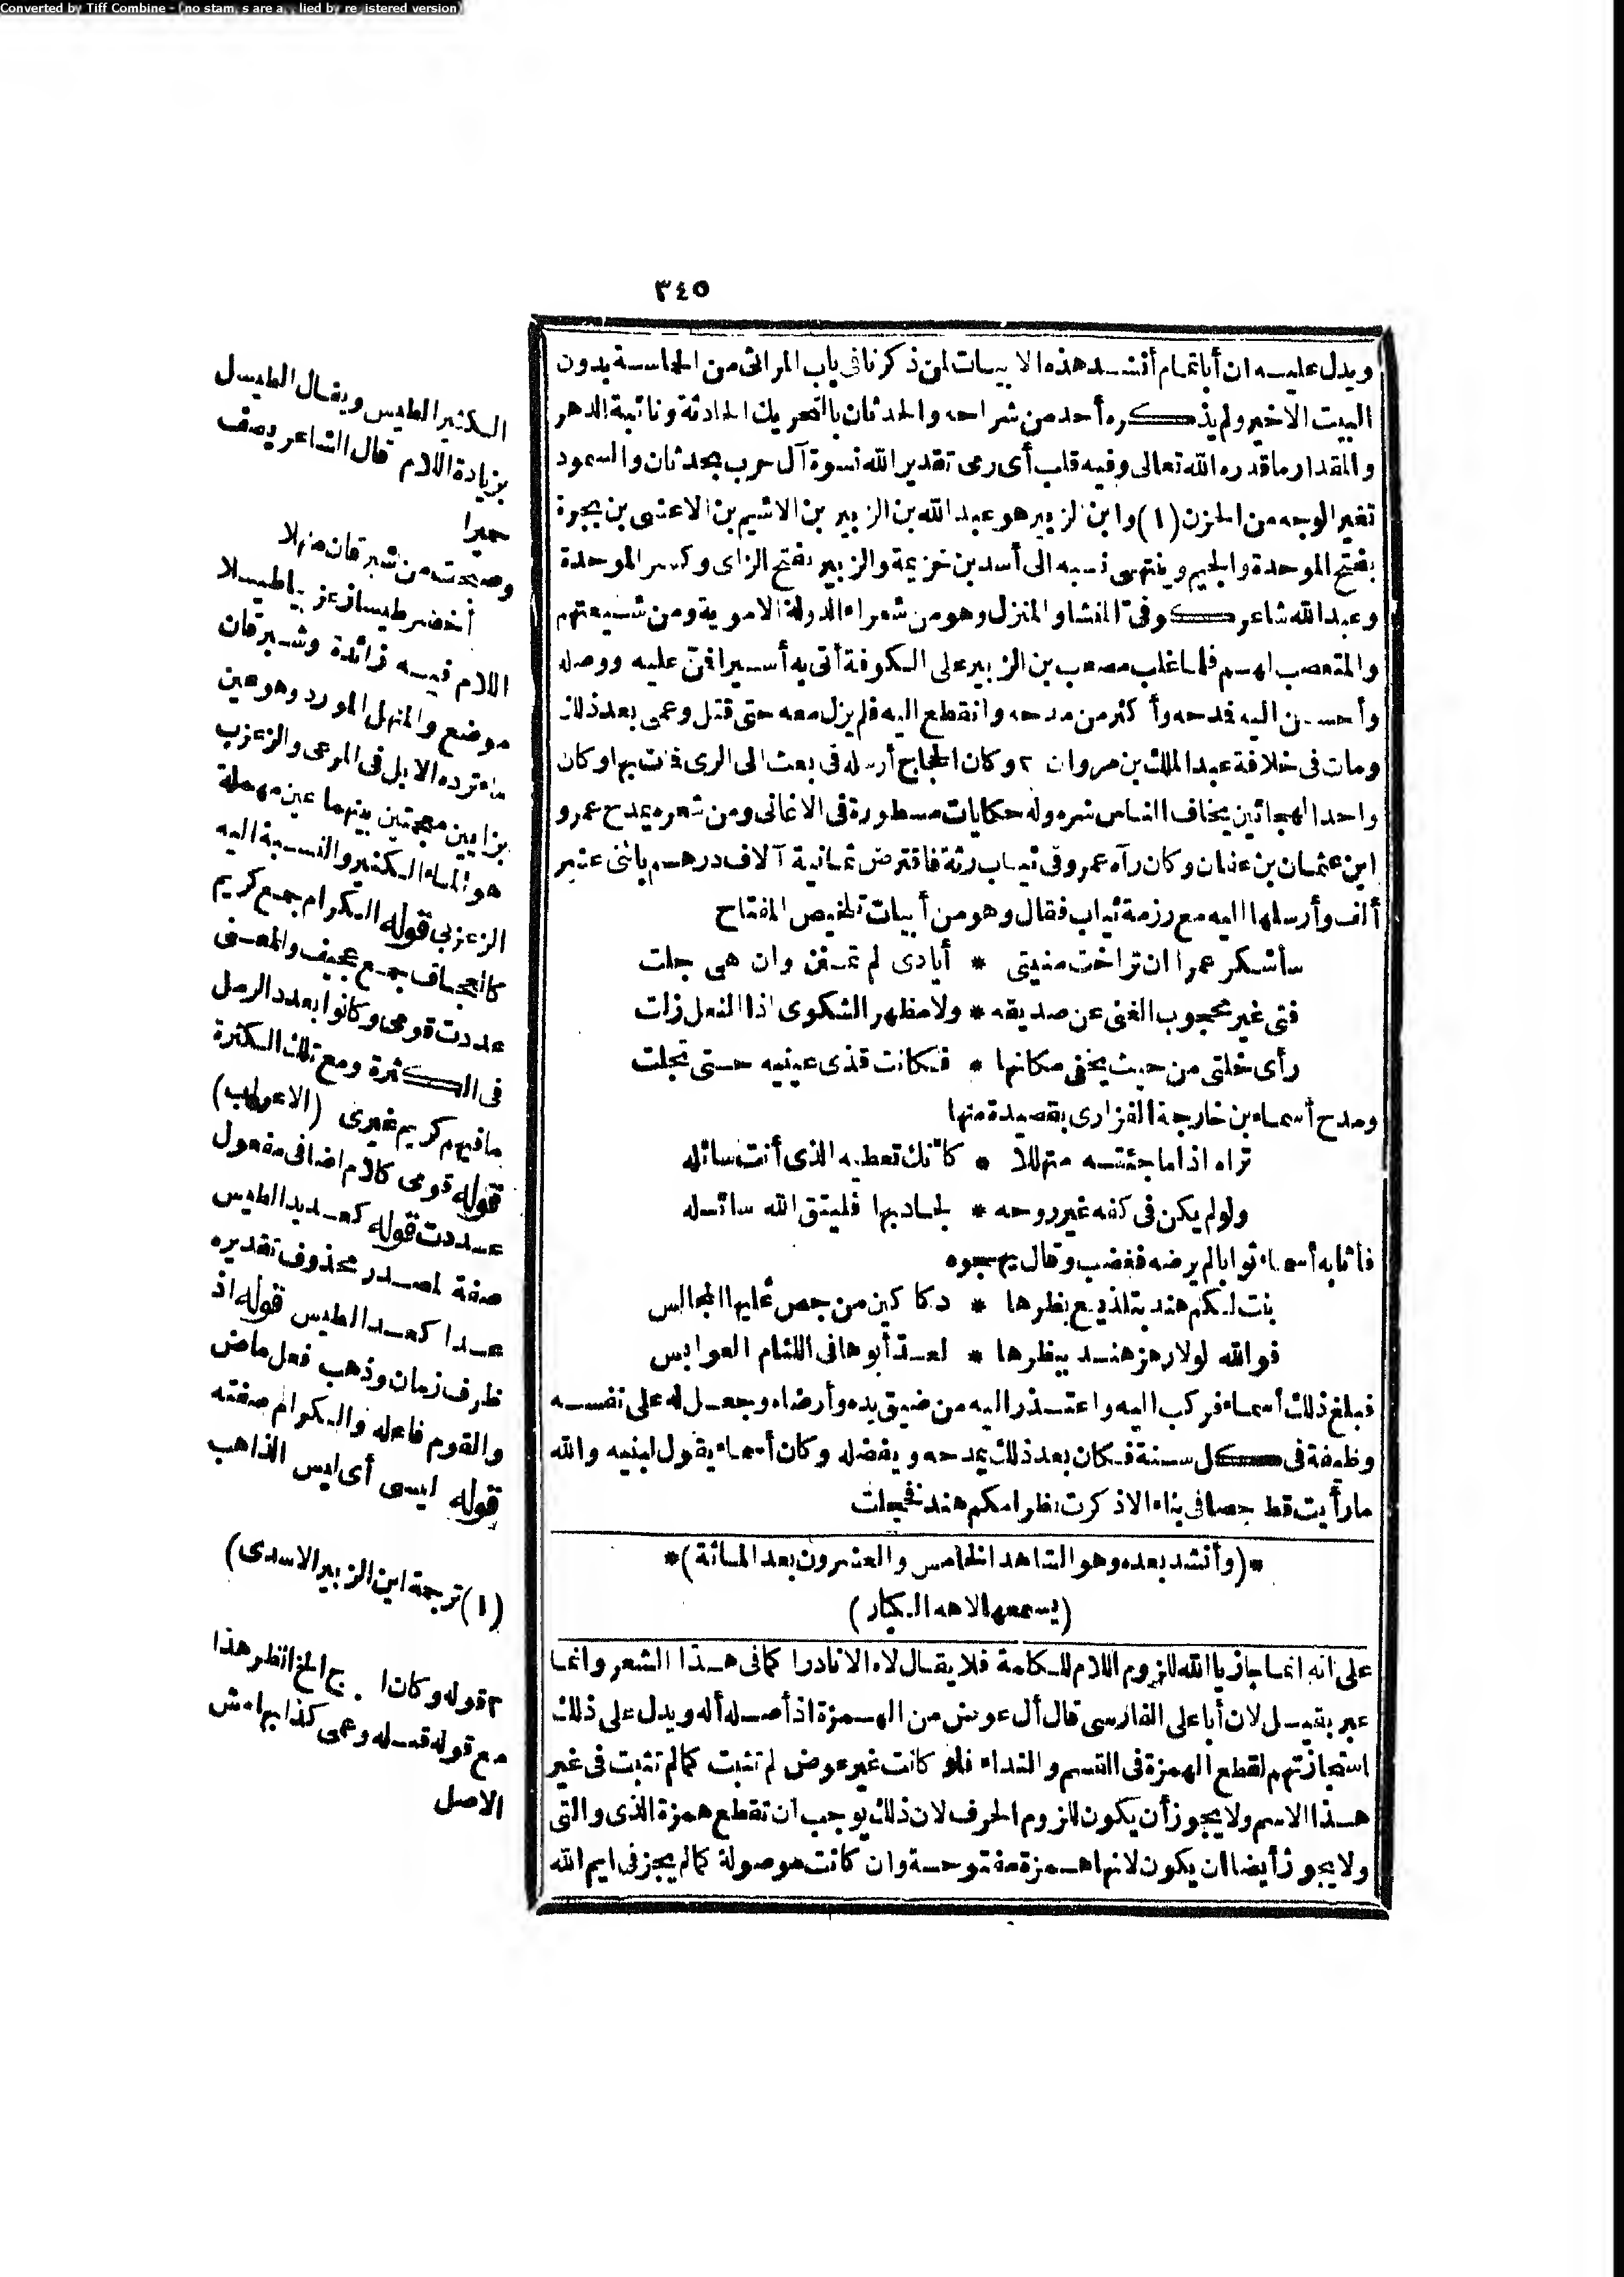 Converted by Tiff Combine - (no stamps are applied by registered version)
٣٤٥
ويدل عليه ان أباتمام أنشد هذه الابيات لمن ذكرنا فى باب المراثى من الحماسة بدون
البيت الاخير ولم يذكره أحد من شراحه والحدثان بالتحريك الحادثة ونائبة الدهر
والمقدار ما قدره الله تعالى وفيه قلب أى رمى تقدير الله نسوة آل حرب بحدثان والسمود
تغير الوجه من الحزن (١) وابن الزبير هو عبد الله بن الزبير بن الاشيم بن الاعشى بن بجرة
بفتح الموحدة والجيم وينتهى نسبه الى أسد بن خزيمة والزبير بفتح الزاى وكسر الموحدة
وعبد الله شاعر كوفىّ المنشا والمنزل وهو من شعراء الدولة الاموية ومن شيعتهم
والمتعصب لهم فلما غلب مصعب بن الزبير على الكوفة أتى به أسيرا فمنّ عليه ووصله
وأحسن اليه فمدحه وأكثر من مدحه وانقطع اليه فلم يزل معه حتى قتل وعمى بعد ذلك
ومات فى خلافة عبد الملك بن مروان ٢ وكان الحجاج أرسله فى بعث الى الرى فمات بها وكان
واحد الهجائين يخاف الناس شره وله حكايات مسطورة فى الاغانى ومن شعره يمدح عمرو
ابن عثمان بن عفان وكان رآه عمرو فى ثياب رثة فاقترض ثمانية آلاف درهم باثنى عشر
ألف وأرسلها اليه مع رزمة ثياب فقال وهو من أبيات تلخيص المفتاح
سأشكر عمرا ان تراخت منيتى * أيادى لم تمنن وان هى جلت
فتى غير محجوب الغنى عن صديقه * ولا مظهر الشكوى اذا النعل زلت
رأى خلتى من حيث يخفى مكانها * فكانت قذى عينيه حتى تجلت
ومدح أسماء بن خارجة الفزارى بقصيدة منها
تراه اذا ما جئته متهللا * كأنك تعطيه الذى أنت سائله
ولو لم يكن فى كفه غير روحه * لجاد بها فليتق الله سائله
فأثابه أسماء ثوابا لم يرضه فغضب وقال يهجوه
بنت لكم هند بتلذيع بظرها * دكاكين من جص عليها المجالس
فوالله لولا رهز هند ببظرها * لعدّ أبوها فى اللئام العوابس
فبلغ ذلك أسماء فركب اليه واعتذر اليه من ضيق يده وأرضاه وجعل له على نفسه
وظيفة فى كل سنة فكان بعد ذلك يمدحه ويفضله وكان أسماء يقول لبنيه والله
ما رأيت قط جصا فى بناء الا ذكرت بظر امكم هند فخجلت
*(وأنشد بعده وهو الشاهد الخامس والعشرون بعد المائة)*
(يسمعها لاهه الكبار)
على انه انما جاز يا الله للزوم اللام للكلمة فلا يقال لاه الا نادرا كما فى هذا الشعر وانما
عبر بقيل لان أبا على الفارسى قال أل عوض من الهمزة اذ أصله أله ويدل على ذلك
استجازتهم لقطع الهمزة فى القسم والنداء فلو كانت غير عوض لم تثبت كما لم تثبت فى غير
هذا الاسم ولا يجوز أن يكون للزوم الحرف لان ذلك يوجب ان تقطع همزة الذى والتى
ولا يجوز أيضا ان يكون لانها همزة مفتوحة وان كانت موصولة كما لم يجز فى ايم الله
الكثير الطيس ويقال الطيسل
بزيادة اللام قال الشاعر يصف
حميرا
وصبحت من شبرقان منهلا
أخضر طيسا زعزبيا طيسلا
اللام فيه زائدة وشبرقان
موضع والمنهل المورد وهو عين
ماء ترده الابل فى المرعى والزعزب
بزايين معجمتين بينهما عين مهملة
هو الماء الكثير والنسبة اليه
الزعزبى قوله الكرام جمع كريم
كالعجاف جمع عجيف والمعنى
عددت قومى وكانوا بعدد الرمل
فى الكثرة ومع تلك الكثرة
ما فيهم كريم غيرى (الاعراب)
قوله قومى كلام اضافى مفعول
عددت قوله كعديد الطيس
صفة لمصدر محذوف تقديره
عددا كعدد الطيس قوله اذ
ظرف زمان وذهب فعل ماض
والقوم فاعله والكرام صفته
قوله ليسى أى ليس الذاهب
(١) ترجمة ابن الزبير الاسدى)
٢ قوله وكان الخ انظر هذا
مع قوله قبله وعمى كذا بهامش
الاصل